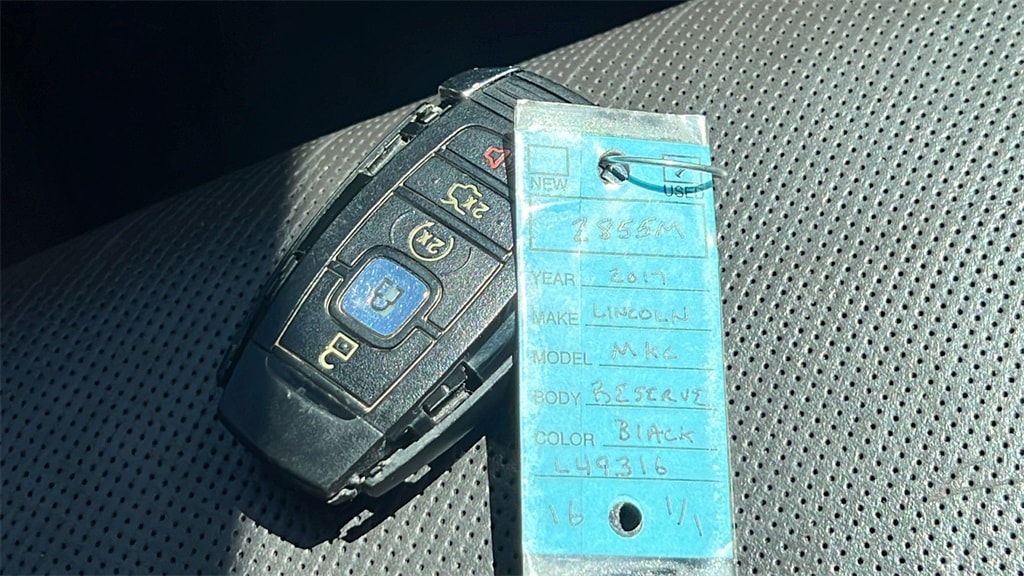 2x
(2x)
NEW
USED
2855M
YEAR 2017
MAKE LINCOLN
MODEL MKC
BODY RESERVE
COLOR BLACK
L49316
16 1/1